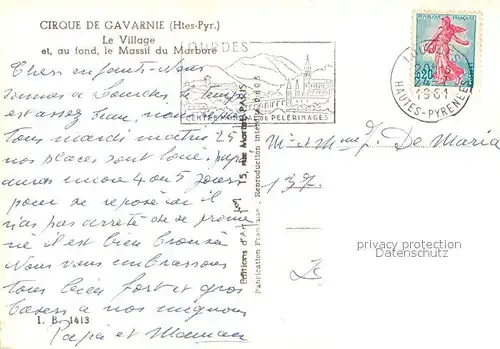 CIRQUE DE GAVARNIE (Htes-Pyr.)
Le Village
et, au fond, le Massif du Marboré
LOURDES
CENTRE MONDIAL DE PÈLERINAGES
RÉPUBLIQUE FRANÇAISE
0,20
1961
HAUTES-PYRÉNÉES
Chers enfants. Nous
sommes a Lourdes le temps
est assez beau, nous
tous mardi matin 25
nos places sont loué. papa
aura encore 4 ou 5 jours
pour se reposer il
n'as pas arreté de se prome
né il est bien bronzé
Nous vous embrassons
tous bien fort et gros
baisers a nos mignons
Papa et Maman
I. B. 1413
Editions d'Art
15, rue Martel, PARIS
Fabrication Française. Reproduction interdite
M. et Mme J. De Maria
privacy protection
Datenschutz